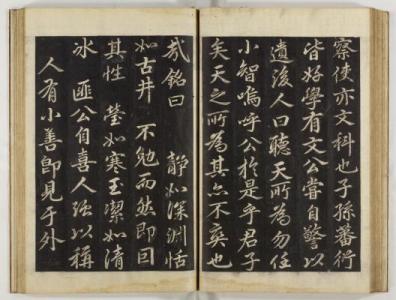 察使亦文科也子孫蕃衍
皆好學有文公嘗自警以
遺後人曰聽天所爲勿任
小智嗚呼公於是乎君子
矣天之所爲其亦不爽也
哉銘曰　靜如深淵恬
如古井　不勉而然卽回
其性　瑩如寒玉潔如清
冰　匪公自喜人强以稱
人有小善卽見于外